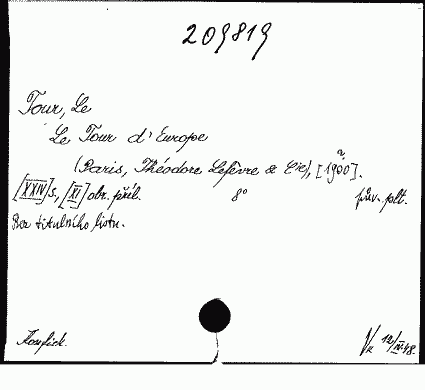 209819
Tour, Le
Le Tour d'Europe
(Paris, Théodore Lefèvre & Cie), [1900].
[XXIV] s, [XI] obr. příl. 8° pův. plt.
Bez titulního listu.
Konfisk. 12/IV.48.